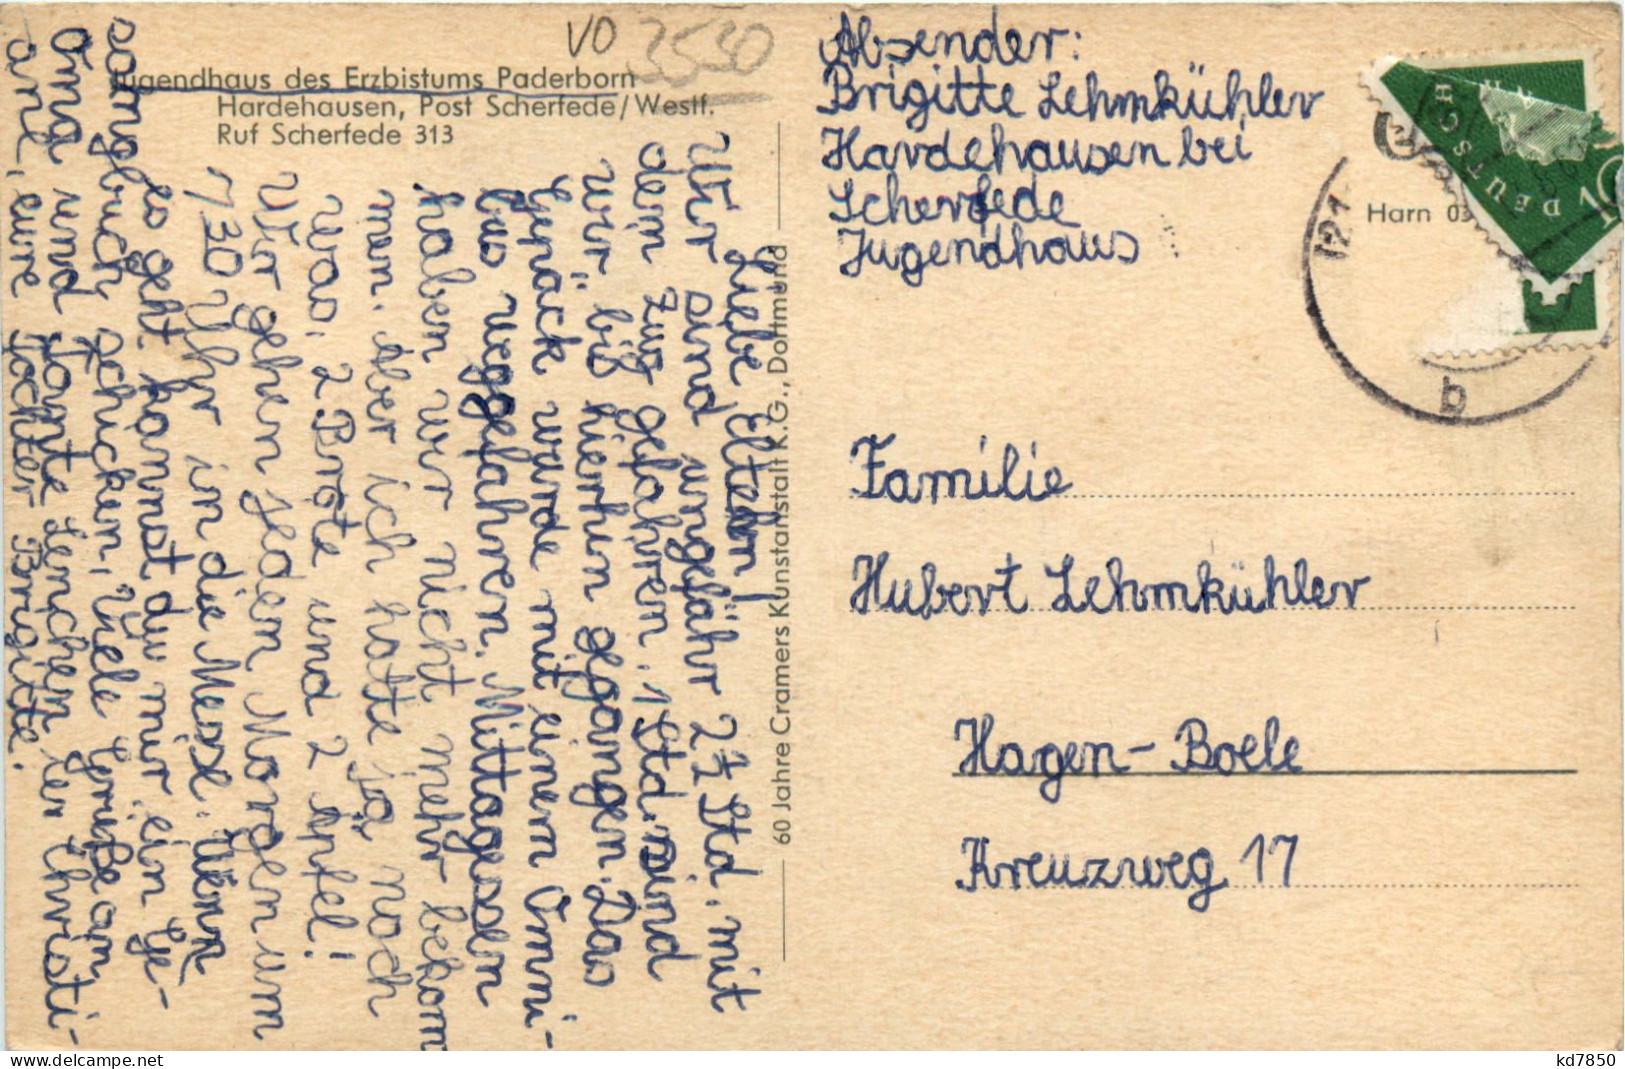 VO 3530
Jugendhaus des Erzbistums Paderborn
Hardehausen, Post Scherfede/Westf.
Ruf Scherfede 313
Liebe Eltern!
Wir sind ungefähr 2½ Std. mit
dem Zug gefahren. 1 Std. sind
wir bis hierhin gegangen. Das
Gepäck wurde mit einem Omni-
bus weggefahren. Mittagessen
haben wir nicht mehr bekom
men. aber ich hatte ja noch
was, 2 Brote und 2 äpfel!
Wir gehen jeden Morgen um
7 30 Uhr in die Messe. Wenn
es geht kannst du mir ein Ge-
sangbuch schicken, Viele Grüße an,
Oma und Tante Lenchen der Christi-
ane, eure Tochter Brigitte.
60 Jahre Cramers Kunstanstalt K.G., Dortmund
Absender:
Brigitte Lehmkühler
Hardehausen bei
Scherfede
Jugendhaus
DEUTSCH
121
b
Harn 03
Familie
Hubert Lehmkühler
Hagen-Boele
Kreuzweg 17
kd7850